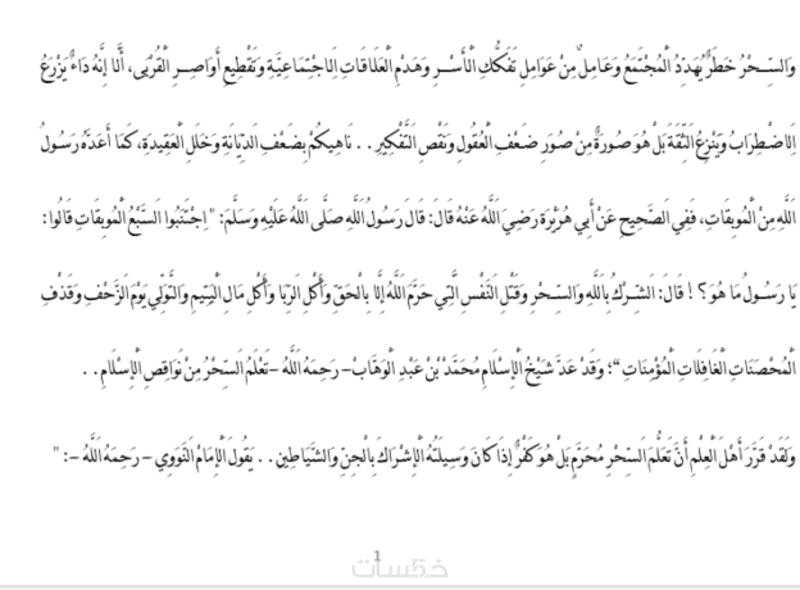 وَالسِّحْرُ خَطَرٌ يُهَدِّدُ الْمُجْتَمَعُ وَعَامِلٌ مِنْ عَوَامِلِ تَفَكُّكِ الْأَسْرِ وَهَدْمِ الْعَلَاقَاتِ اِلَاجْتِمَاعِيَّةِ وَتَقْطِيعِ أَوَاصِرِ الْقُرْبَى، أَلَا إِنَّهُ دَاءٌ يَزْرَعُ
اِلَاضْطِرَابُ وَيَنْزِعُ الثِّقَةَ بَلْ هُوَ صُورَةٌ مِنْ صُوَرِ ضَعْفِ الْعُقُولِ وَنَقْصِ التَّفْكِيرِ . . نَاهِيكُمْ بِضَعْفِ الدِّيَانَةِ وَخَلَلِ الْعَقِيدَةِ، كَمَا أَعَدَّهُ رَسُولُ
اللَّهِ مِنْ الْمُوبِقَاتِ، فَفِي الصَّحِيحِ عَنْ أَبِي هُرَيْرَة رَضِيَ اللَّهُ عَنْهُ قَالَ: قَالَ رَسُولُ اللَّهِ صَلَّى اللَّهُ عَلَيْهِ وَسَلَّمَ: " اِجْتَنِبُوا السَّبْعُ الْمُوبِقَاتِ قَالُوا:
يَا رَسُولُ مَا هُوَ؟ ! قَالَ: الشِّرْكُ بِاللَّهِ وَالسِّحْرِ وَقَتْلِ النَّفْسِ الَّتِي حَرَّمَ اللَّهُ إِلَّا بِالْحَقِّ وَأَكْلِ الرِّبَا وَأَكْلِ مَالِ الْيَتِيمِ وَالتَّوَلِّي يَوْمَ الزَّحْفِ وَقَذْفِ
الْمُحْصَنَاتِ الْغَافِلَاتِ الْمُؤْمِنَاتِ“؛ وَقَدْ عَدَّ شَيْخُ الْإِسْلَامِ مُحَمَّدْ بْنْ عَبْدِ الْوَهَّابْ– رَحِمَهُ اللَّهُ –تَعْلَمُ السِّحْرُ مِنْ نَوَاقِصِ الْإِسْلَامِ. .
وَلَقَدْ قَرَّرَ أَهْلَ الْعِلْمِ أَنَّ تَعَلُّمَ السِّحْرِ مُحَرَّمٍ بَلْ هُوَ كَفْرٌ إِذَا كَانَ وَسِيلَتُهُ الْإِشْرَاكَ بِالْجِنِّ وَالشَّيَاطِينِ . . يَقُولَ الْإِمَامْ النَّوَوِي – رَحِمَهُ اللَّهُ –: "
1
خمسات